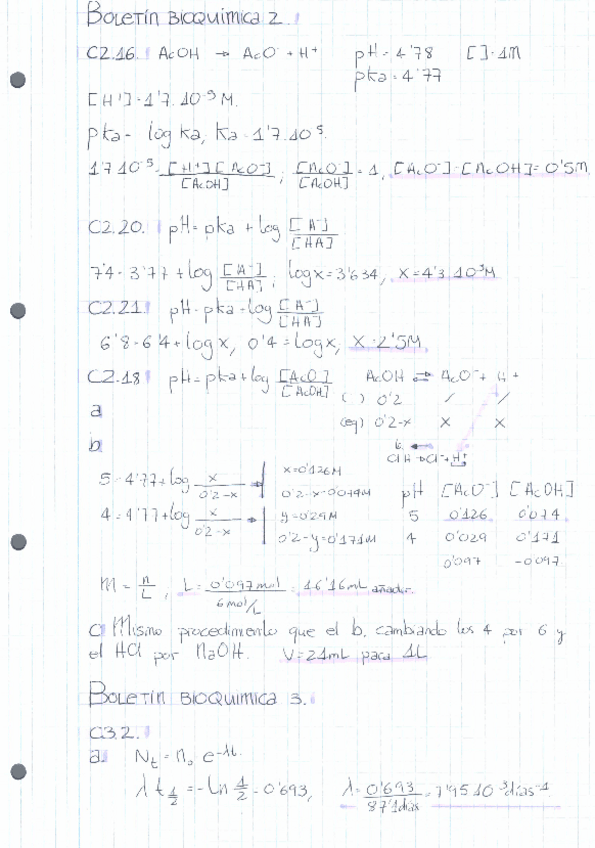 Boletín Bioquímica 2.
C2.16. AcOH → AcO⁻ + H⁺ pH = 4'78 [ ] = 1M
pka = 4'77
[H⁺] = 1'7·10⁻⁵ M.
pka = - log ka; ka = 1'7·10⁻⁵.
1'7·10⁻⁵ = [H⁺][AcO⁻] / [AcOH] ; [AcO⁻] / [AcOH] = 1, [AcO⁻] = [AcOH] = 0'5M
C2.20. pH = pka + log [A⁻] / [HA]
7'4 = 3'77 + log [A⁻] / [HA] ; log x = 3'634, x = 4'3·10⁻³M
C2.21. pH = pka + log [A⁻] / [HA]
6'8 = 6'4 + log x, 0'4 = log x, x = 2'5M
C2.18 pH = pka + log [AcO⁻] / [AcOH] AcOH ⇌ AcO⁻ + H⁺
( ) 0'2 / /
a
(eq) 0'2-x x x
b
ClH → Cl⁻ + H⁺
5 = 4'77 + log x / 0'2-x → x = 0'126M
0'2-x = 0'074M
4 = 4'77 + log x / 0'2-x → y = 0'29M
0'2-y = 0'171M
pH [AcO⁻] [AcOH]
5 0'126 0'074
4 0'029 0'171
0'097 -0'097
M = n / L , L = 0'097mol / 6mol/L = 16'16mL añadir.
c) Mismo procedimiento que el b, cambiando los 4 por 6 y
el HCl por NaOH. V = 21mL para 1L
Boletín Bioquímica 3.
C3.2.
a. Nt = n₀ e^-λt.
λ t 1/2 = - Ln 1/2 = 0'693, λ = 0'693 / 87'1días = 7'95·10⁻³días⁻¹